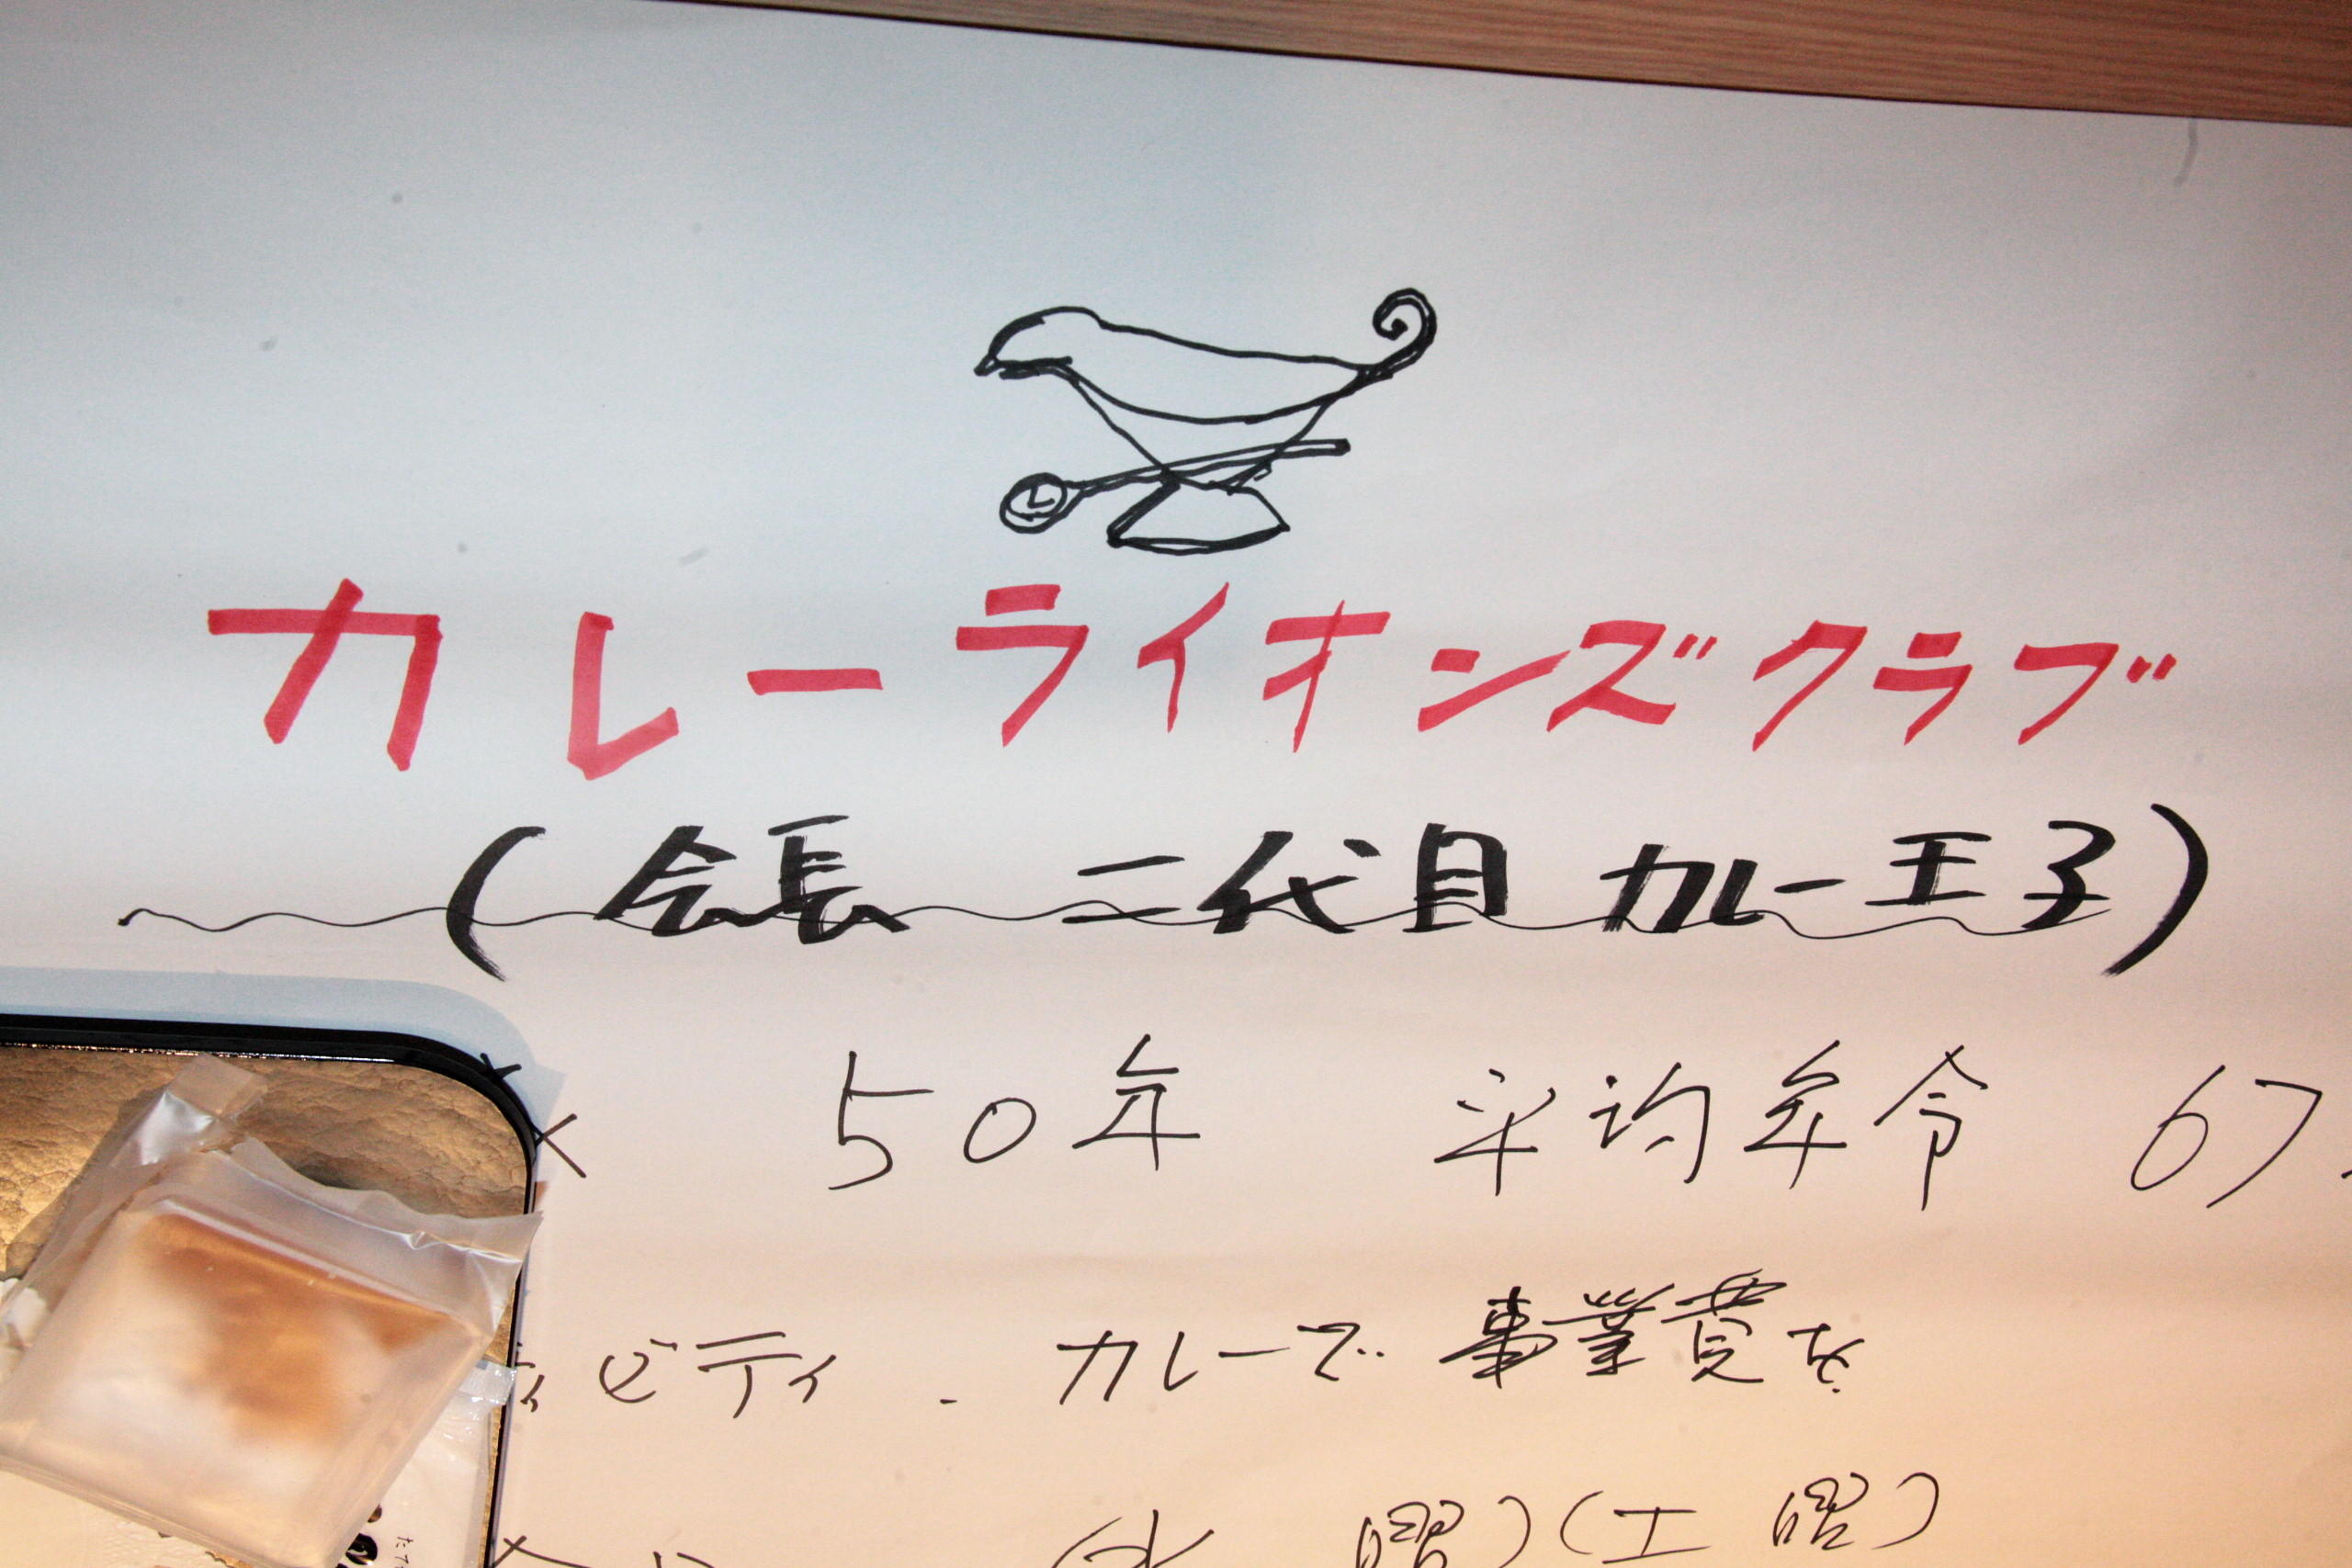 カレーライオンズクラブ
(会長 二代目 カレー王子)
50年 平均年令 67.
ビティ . カレーで 事業費を
(水 曜)(土 曜)